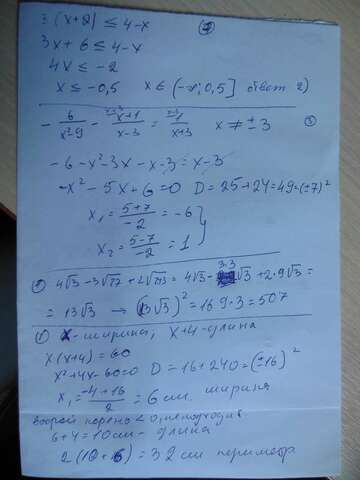 3(x+2) ≤ 4-x ②
3x + 6 ≤ 4-x
4x ≤ -2
x ≤ -0,5 x ∈ (-∞; 0,5] ответ 2)
- 6/(x²-9) - (x+1)/(x-3) = 1/(x+3) x ≠ ± 3 ③
-6-x²-3x-x-3 = x-3
-x²-5x+6=0 D=25+24=49=(±7)²
x₁ = (5+7)/(-2) = -6
x₂ = (5-7)/(-2) = 1
4√3-3√27+2√243=4√3- 3·3√3+2·9√3=
= 13√3 → (13√3)²=169·3=507
① x-ширина, x+4-длина
x(x+4)=60
x²+4x-60=0 D=16+240=(±16)²
x₁=(-4+16)/2=6см. ширина
второй корень<0, не подходит
6+4=10см- длина
2(10+6)=32см периметр